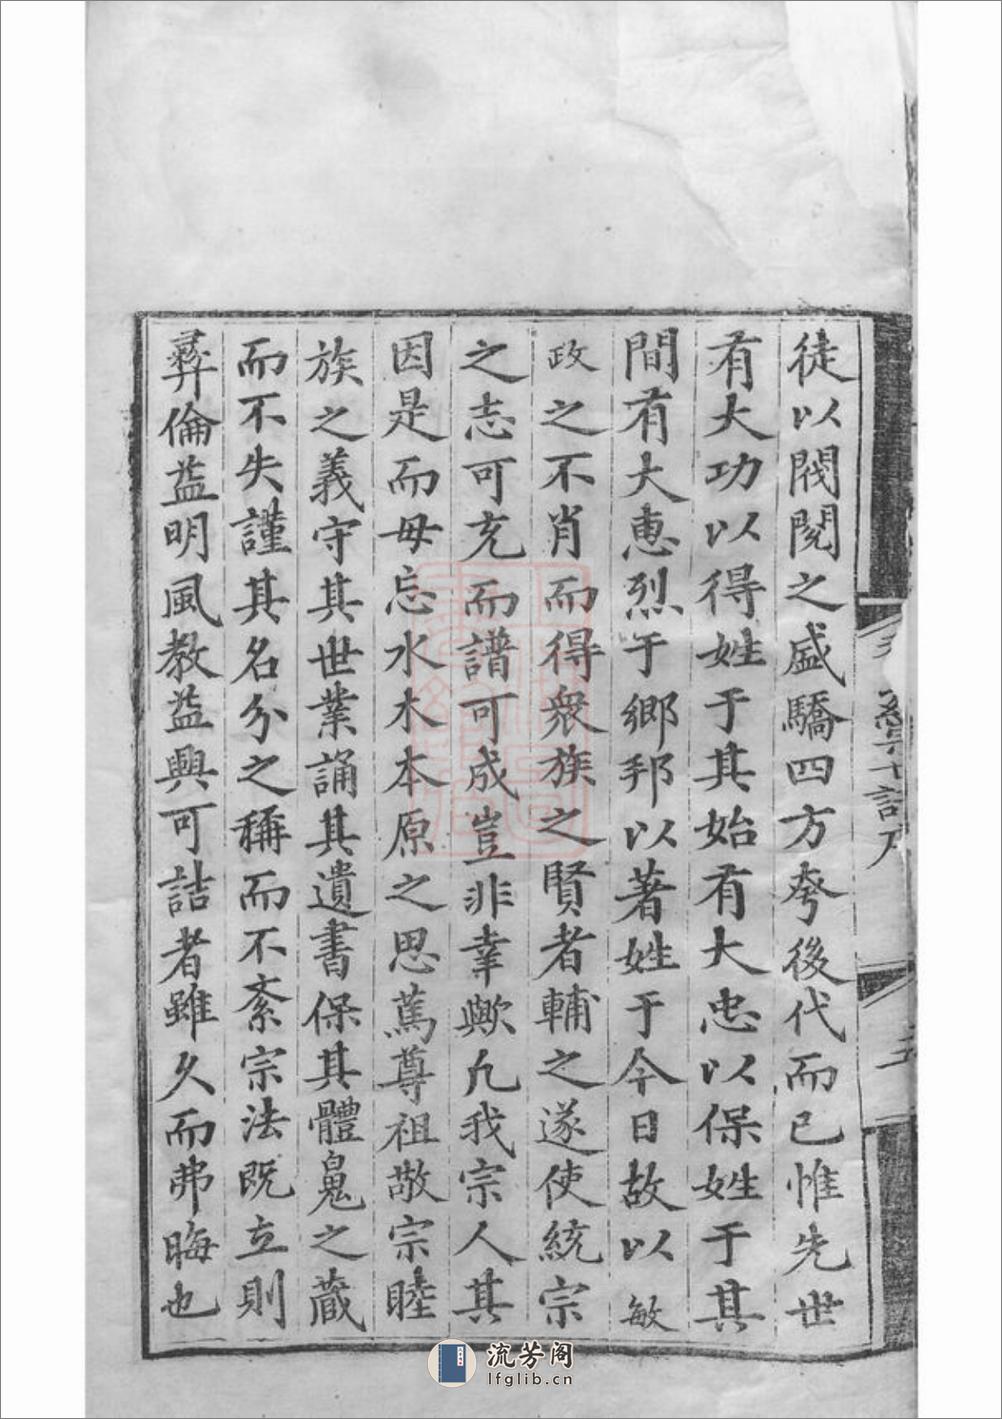 徒以閥閱之盛驕四方夸後代而已惟先世
有大功以得姓于其始有大忠以保姓于其
間有大惠烈于鄉邦以著姓于今日故以敏
政之不肖而得衆族之賢者輔之遂使統宗
之志可充而譜可成豈非幸歟凡我宗人其
因是而毋忘水木本原之思篤尊祖敬宗睦
族之義守其世業誦其遺書保其體鬼之藏
而不失謹其名分之稱而不紊宗法既立則
彛倫益明風教益興可詰者雖久而弗晦也
流芳阁
lfglib.cn